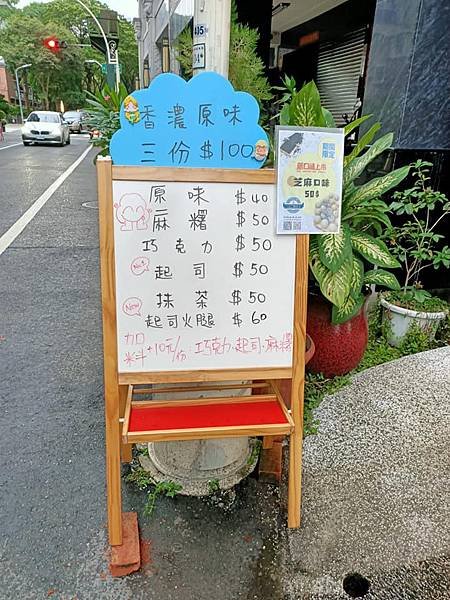 香濃原味
三份$100
原味 $40
麻糬 $50
巧克力 $50
No.1
起司 $50
New
抹茶 $50
起司火腿 $60
加料+10元/份 巧克力.起司.麻糬
期間限定
新口味上市
芝麻口味
50$